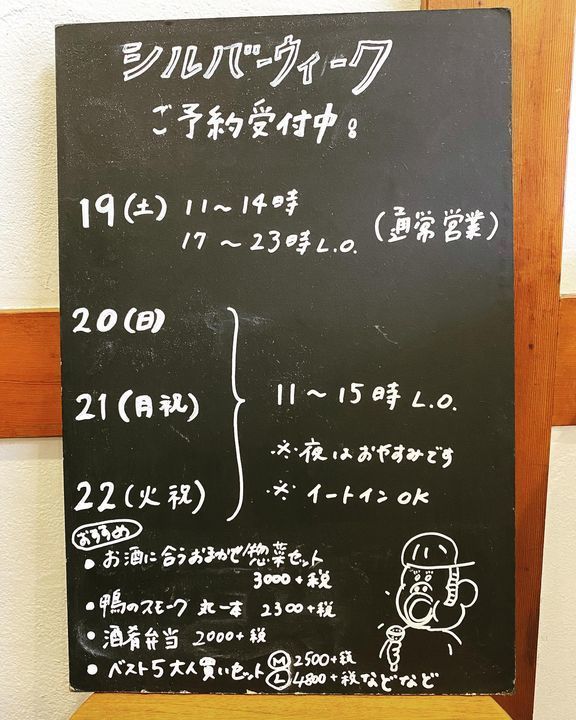 シルバーウィーク
ご予約受付中!
19(土) 11～14時
17～23時L.O. (通常営業)
20(日)
21(月祝)
22(火祝)
11～15時 L.O.
※夜はおやすみです
※イートインOK
おすすめ
• お酒に合うおまかせ惣菜セット
3000+税
• 鴨のスモーク 丸一本 2300+税
• 酒肴弁当 2000+税
• ベスト5大人買いセット Ⓜ2500+税
Ⓛ4800+税 などなど